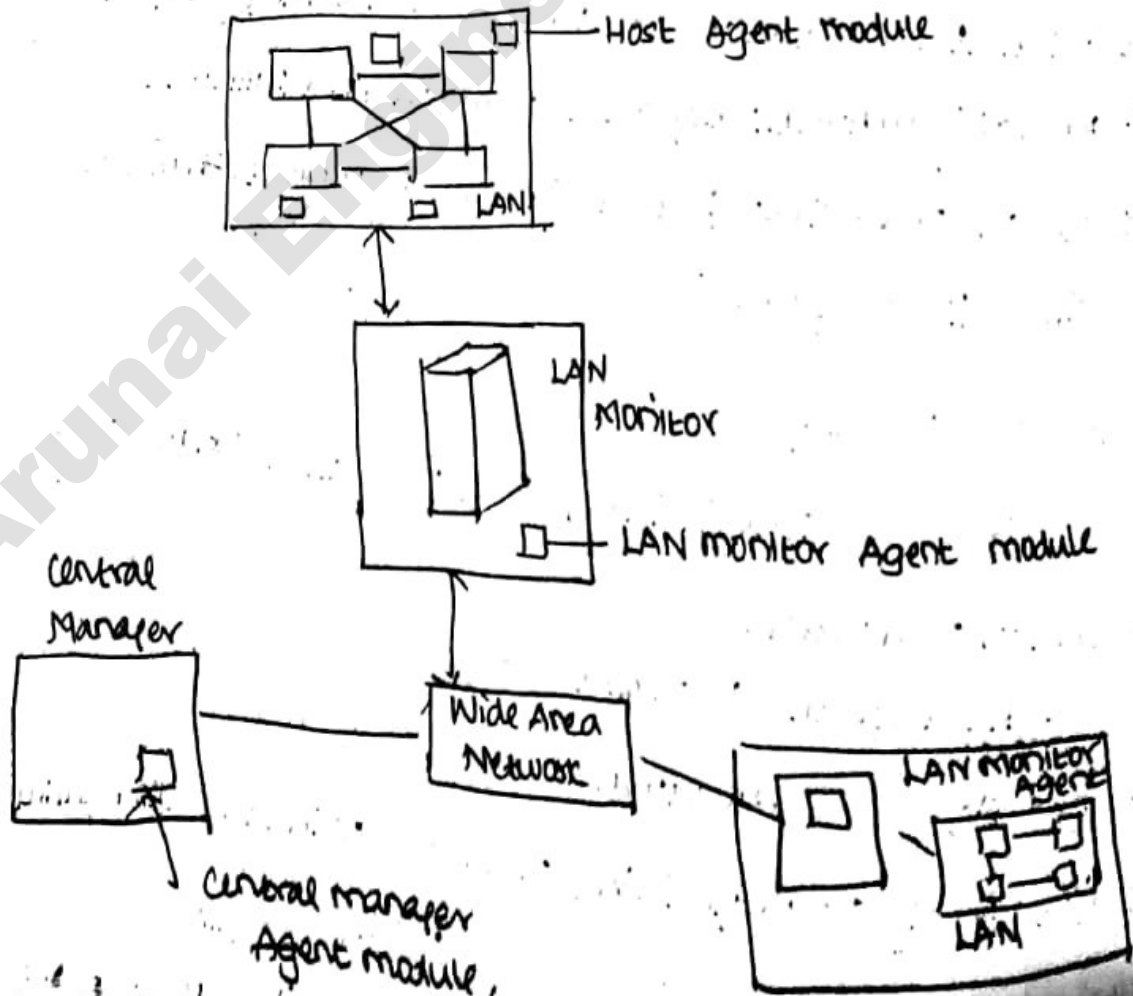 Host Agent module.
LAN
LAN
Monitor
LAN monitor Agent module
Central
Manager
Wide Area
Network
LAN monitor
Agent
LAN
Central manager
Agent module,
Arunai